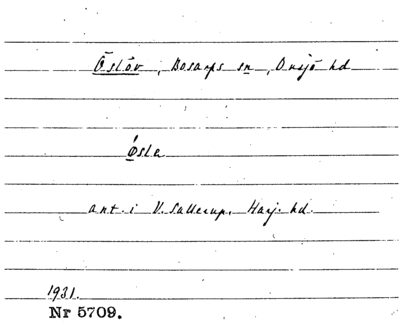 Öslöv, Bosarps sn, Onsjö hd
Ǿsla
ant. i V. Sallerup, Harj. hd.
1931.
Nr 5709.